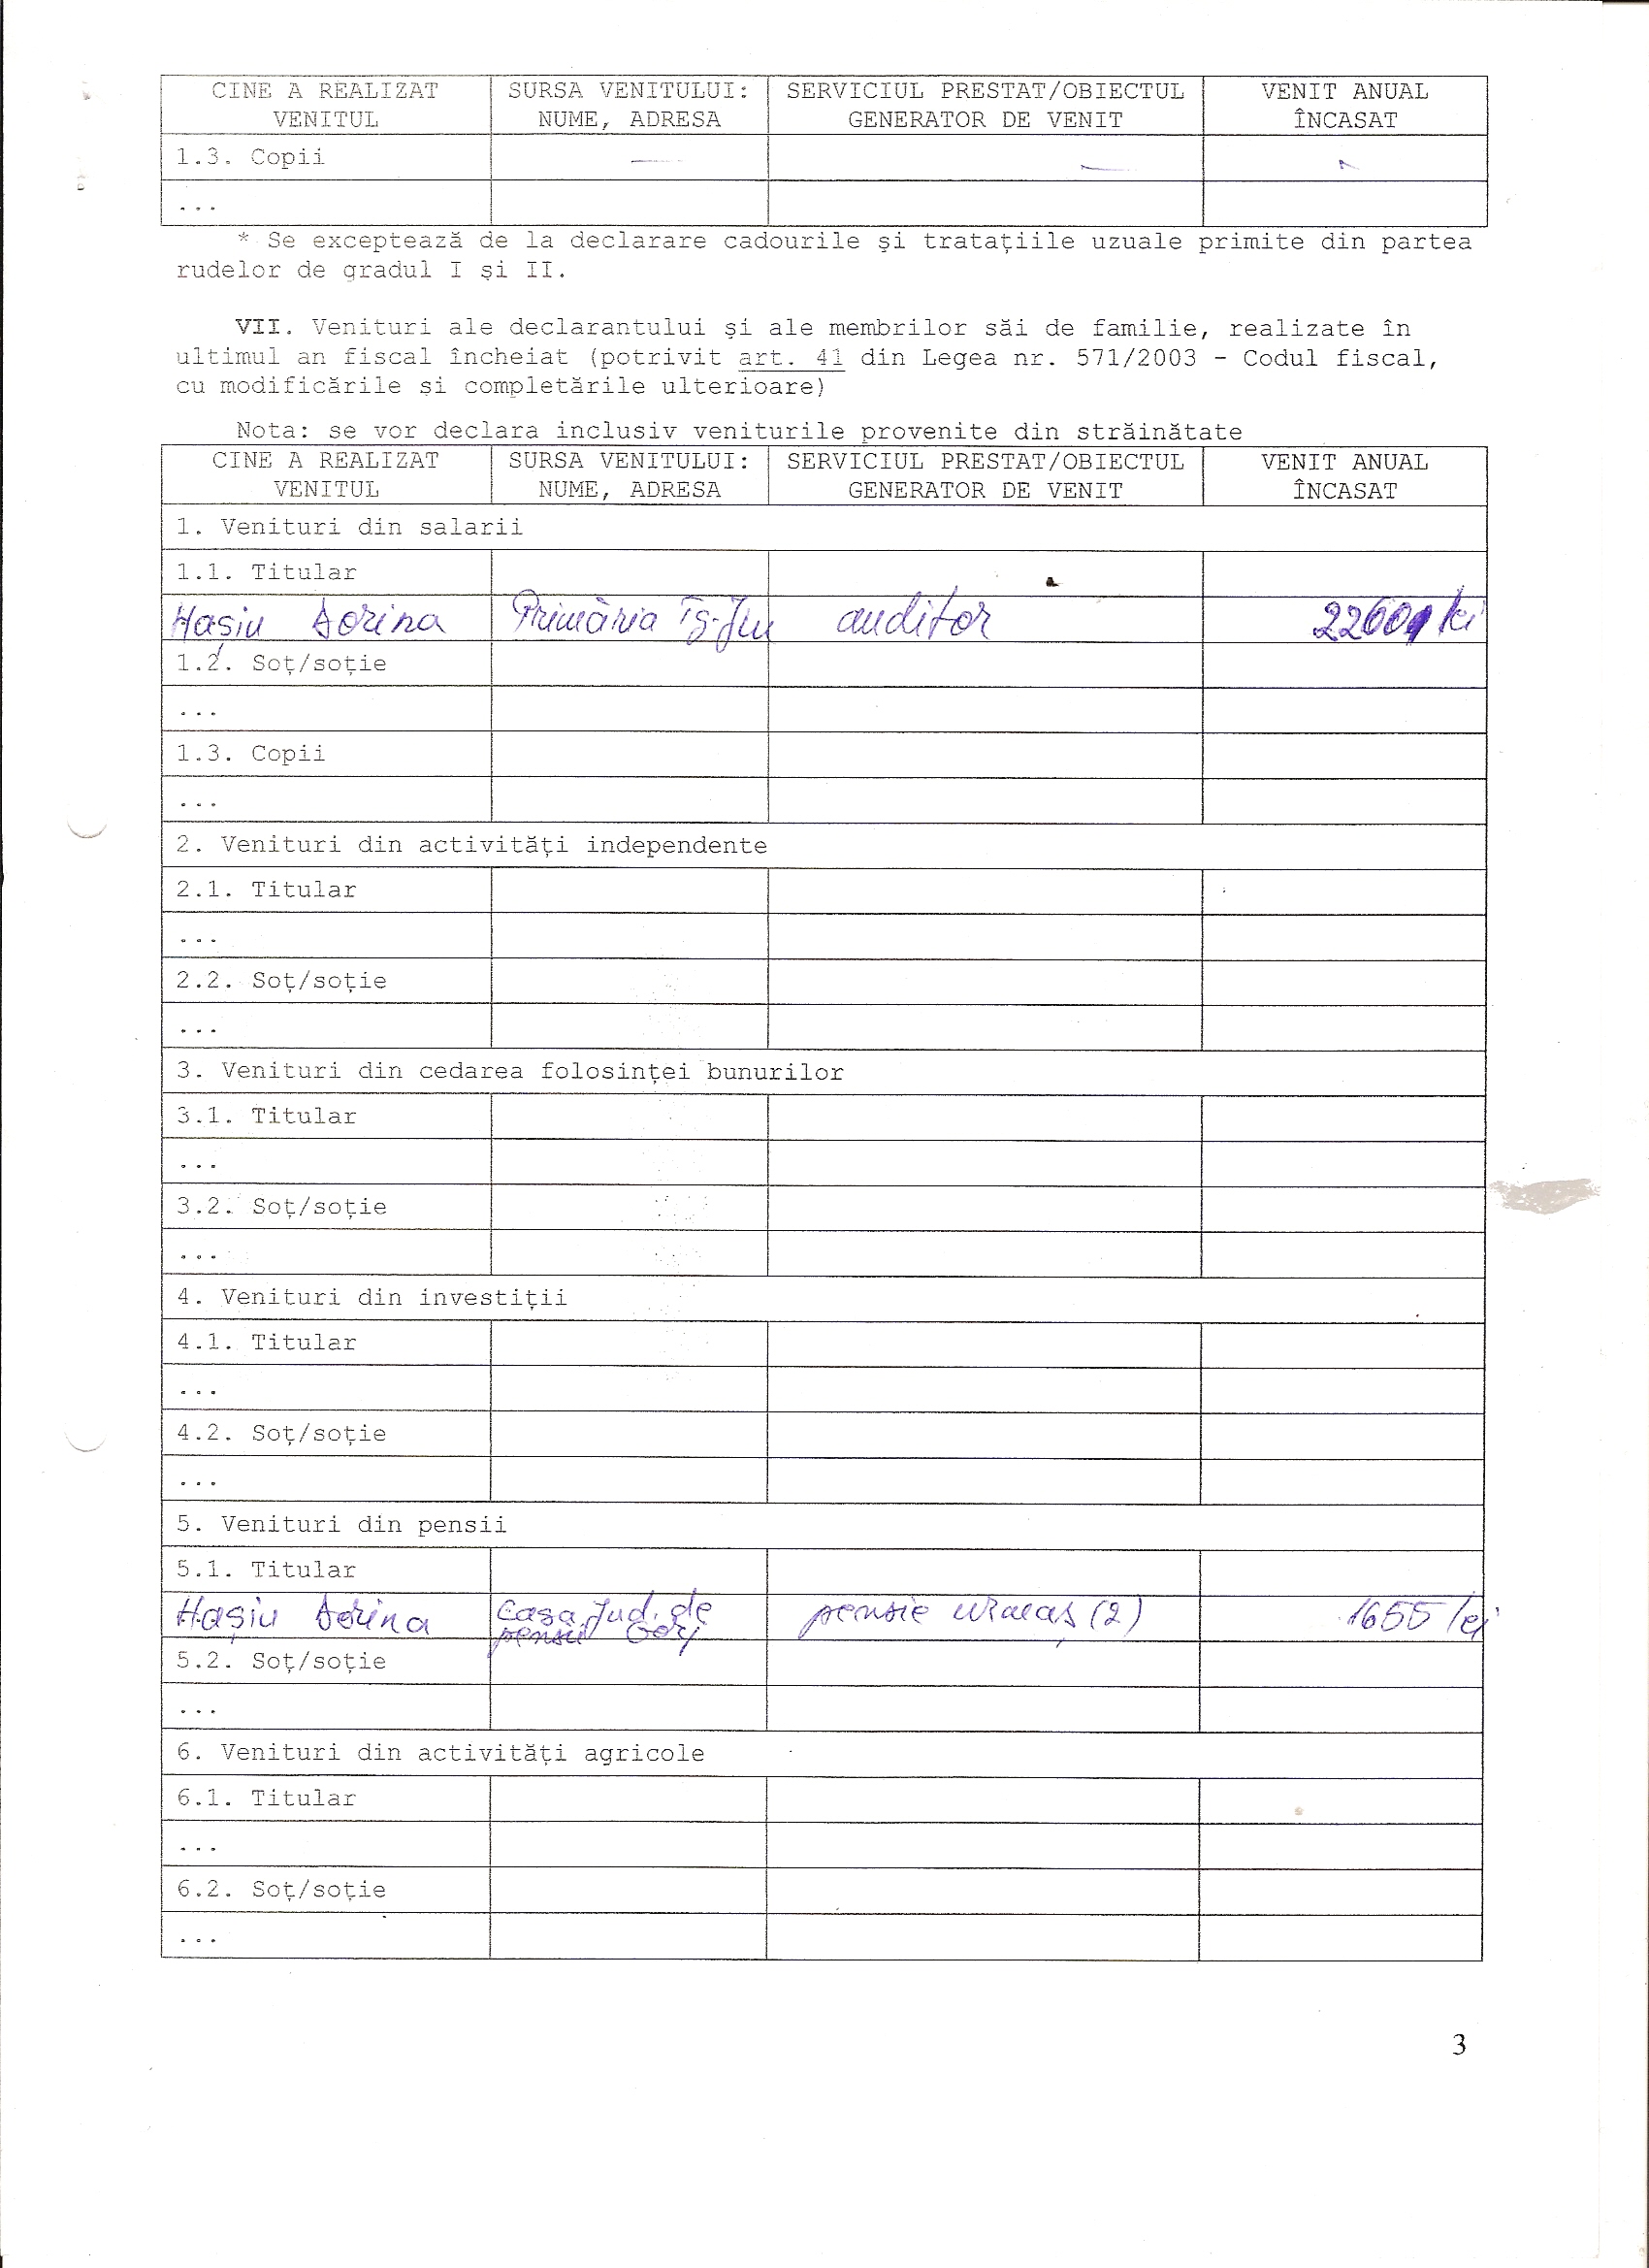 CINE A REALIZAT VENITUL SURSA VENITULUI: NUME, ADRESA SERVICIUL PRESTAT/OBIECTUL GENERATOR DE VENIT VENIT ANUAL ÎNCASAT
1.3. Copii — — -
...
* Se exceptează de la declarare cadourile şi trataţiile uzuale primite din partea
rudelor de gradul I şi II.
VII. Venituri ale declarantului şi ale membrilor săi de familie, realizate în
ultimul an fiscal încheiat (potrivit art. 41 din Legea nr. 571/2003 - Codul fiscal,
cu modificările şi completările ulterioare)
Nota: se vor declara inclusiv veniturile provenite din străinătate
CINE A REALIZAT VENITUL SURSA VENITULUI: NUME, ADRESA SERVICIUL PRESTAT/OBIECTUL GENERATOR DE VENIT VENIT ANUAL ÎNCASAT
1. Venituri din salarii
1.1. Titular
Haşiu Dorina Primăria Tg-Jiu auditor lei
1.2. Soţ/soţie
...
1.3. Copii
...
2. Venituri din activităţi independente
2.1. Titular
...
2.2. Soţ/soţie
...
3. Venituri din cedarea folosinţei bunurilor
3.1. Titular
...
3.2. Soţ/soţie
...
4. Venituri din investiţii
4.1. Titular
...
4.2. Soţ/soţie
...
5. Venituri din pensii
5.1. Titular
Haşiu Dorina Casa Jud. de pensii Gorj pensie urmaş (2) 1655 lei
5.2. Soţ/soţie
...
6. Venituri din activităţi agricole
6.1. Titular
...
6.2. Soţ/soţie
...
3